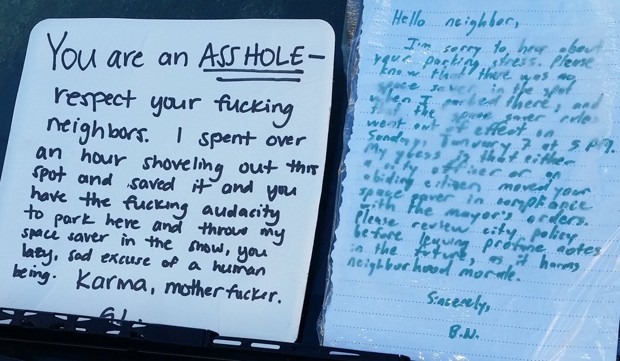 You are an ASSHOLE-
respect your fucking
neighbors. I spent over
an hour shoveling out this
spot and saved it and you
have the fucking audacity
to park here and throw my
space saver in the snow, you
lazy, sad excuse of a human
being. Karma, motherfucker.
Hello neighbor,
I'm sorry to hear about
your parking stress. Please
know that there was no
space saver in the spot
when I parked there, and
the space saver rules
went out of effect on
Sunday, January 7 at 5 PM.
My guess is that either
a city officer or an
abiding citizen moved your
space saver in compliance
with the mayor's orders.
Please review city policy
before leaving profane notes
in the future, as it harms
neighborhood morale.
Sincerely,
B.N.